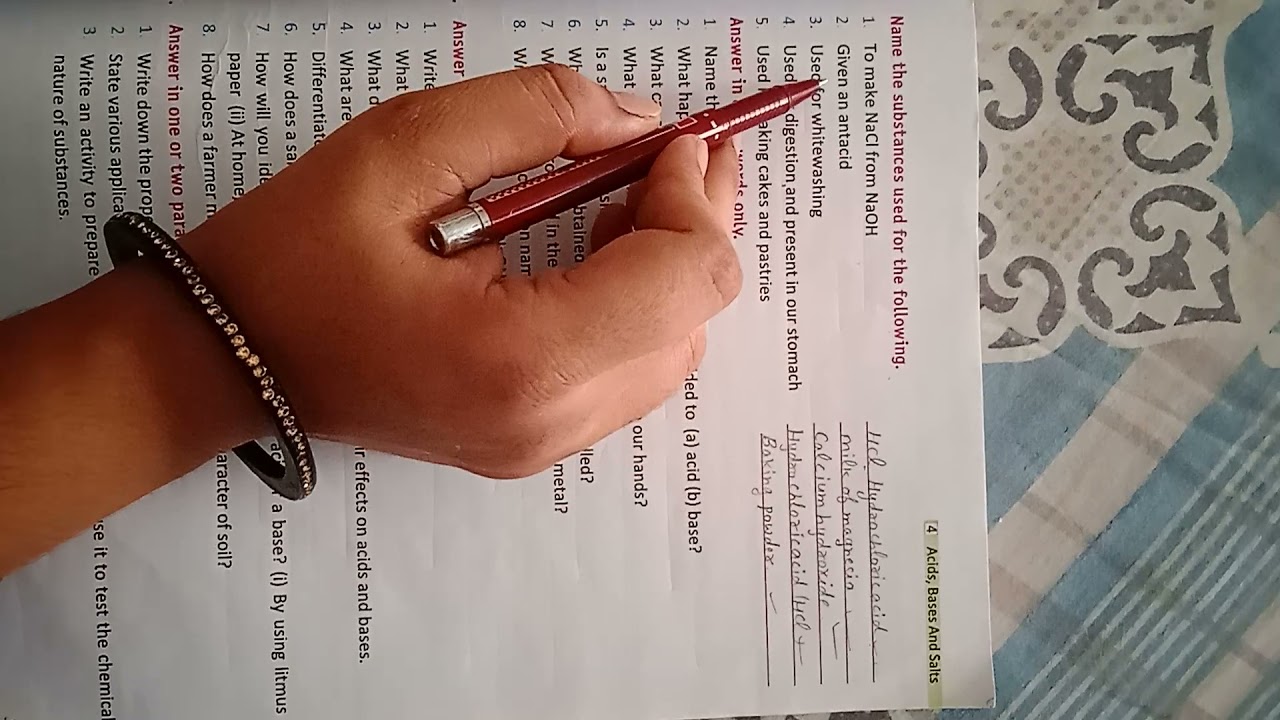 4 Acids, Bases And Salts
Name the substances used for the following.
1. To make NaCl from NaOH Hcl Hydrochloric acid
2 Given an antacid milk of magnesia
3. Used for whitewashing Calcium hydroxide
4. Used digestion and present in our stomach Hydrochloric acid (Hcl
5. Used aking cakes and pastries Baking powder
Answer in words only.
1. Name th
2. What hap ded to (a) acid (b) base?
3. What c
4. What our hands?
5. Is a s
6. Wh btained lled?
7. W in the metal?
8. W n nam
Answer
1. Write
2. What
3. What d
4. What are ir effects on acids and bases.
5. Differentiate
6. How does a sa
7. How will you ide a base? (i) By using litmus
paper (ii) At home
8. How does a farmer aracter of soil?
Answer in one or two para
1 Write down the prop
2 State various applica
3 Write an activity to prepare se it to test the chemical
nature of substances.